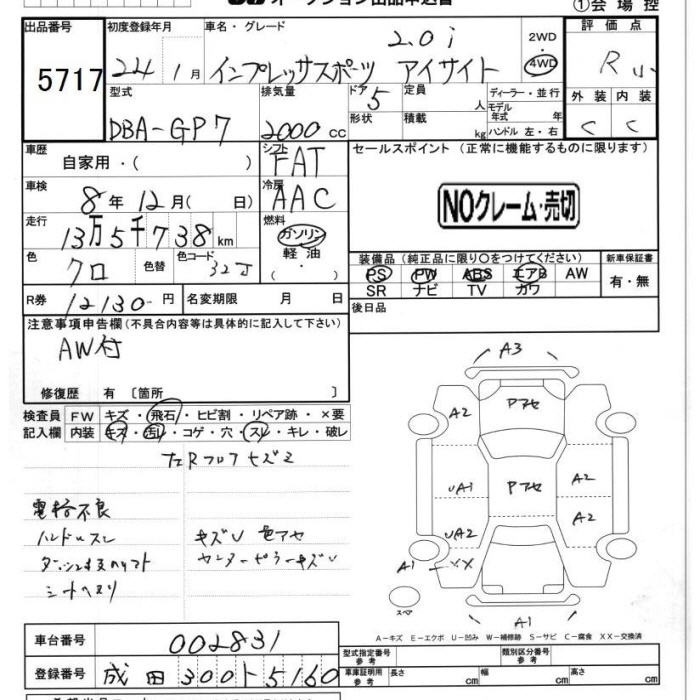 オークション出品申込書
①会場控
出品番号
5717
初度登録年月
24年1月
車名・グレード
2.0i
インプレッサスポーツ アイサイト
2WD
4WD
評価点
R
外装 内装
C C
型式
DBA-GP7
排気量
2000cc
ドア
5
形状
定員
人
積載
kg
ディーラー・並行
モデル年式 年
ハンドル 左・右
車歴
自家用・( )
シフト
FAT
車検
8年12月( 日)
冷房
AAC
走行
13万5千738km
燃料
ガソリン
軽油
・( )
色
クロ
色替
色コード
32J
R券
12130-円
名変期限 月 日
セールスポイント (正常に機能するものに限ります)
NOクレーム・売切
装備品(純正品に限り○をつけてください)
PS PW ABS エアB AW
SR ナビ TV カワ
新車保証書
有・無
後日品
注意事項申告欄(不具合内容等は具体的に記入して下さい)
AW付
修復歴 有〔箇所 〕
検査員
記入欄
FW キズ・飛石・ヒビ割・リペア跡・×要
内装 キズ・汚レ・コゲ・穴・スレ・キレ・破レ
電格不良
ハンドルスレ
シートヘタリ
キズU 色アセ
センターピラーキズU
A3
A2
Pアセ
UA1
Pアセ
A2
UA2
A2
A1
XX
A1
スペア
A-キズ E-エクボ U-凹み W-補修跡 S-サビ C-腐食 XX-交換済
車台番号
002831
登録番号
成田300ト5160
型式指定番号
参考
類別区分番号
参考
車庫証明用
参考
長さ cm
幅 cm
高さ cm